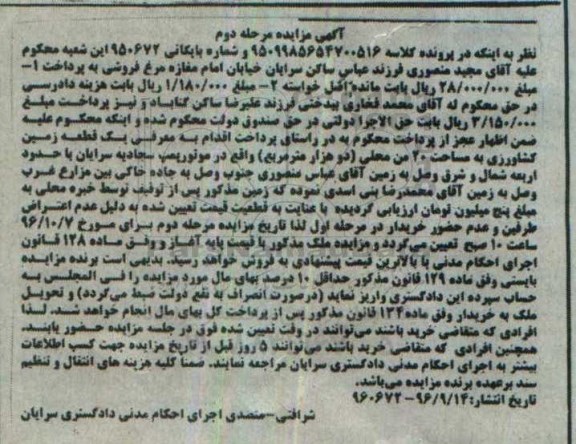 آگهی مزایده مرحله دوم
نظر به اینکه در پرونده کلاسه ۹۵۰۹۹۸۵۶۵۴۷۰۰۵۱۶ و شماره بایگانی ۹۵۰۶۷۲ این شعبه محکوم
علیه آقای مجید منصوری فرزند عباس ساکن سرایان خیابان امام مغازه مرغ فروشی به پرداخت ۱-
مبلغ ۲۸/۰۰۰/۰۰۰ ریال بابت مانده اصل خواسته ۲- مبلغ ۱/۱۸۰/۰۰۰ ریال بابت هزینه دادرسی
در حق محکوم له آقای محمد فخاری بیدختی فرزند علیرضا ساکن گناباد و نیز پرداخت مبلغ
۳/۱۵۰/۰۰۰ ریال بابت حق الاجرا دولتی در حق صندوق دولت محکوم شده و اینکه محکوم علیه
ضمن اظهار عجز از پرداخت محکوم به در راستای پرداخت اقدام به معرفی یک قطعه زمین
کشاورزی به مساحت ۲۰ من محلی (دو هزار مترمربع) واقع در موتورپمپ سجادیه سرایان با حدود
اربعه شمال و شرق وصل به زمین آقای عباس منصوری جنوب وصل به جاده خاکی بین مزارع غرب
وصل به زمین آقای محمدرضا بنی اسدی نموده که زمین مذکور پس از توقیف توسط خبره محلی به
مبلغ پنج میلیون تومان ارزیابی گردیده با عنایت به قطعیت قیمت تعیین شده به دلیل عدم اعتراض
طرفین و عدم حضور خریدار در مرحله اول لذا تاریخ مزایده مرحله دوم برای مورخ ۹۶/۱۰/۷
ساعت ۱۰ صبح تعیین می‌گردد و مزایده ملک مذکور با قیمت پایه آغاز و وفق ماده ۱۲۸ قانون
اجرای احکام مدنی با بالاترین قیمت پیشنهادی به فروش خواهد رسید. بدیهی است برنده مزایده
بایستی وفق ماده ۱۲۹ قانون مذکور حداقل ۱۰ درصد بهای مال مورد مزایده را فی المجلس به
حساب سپرده این دادگستری واریز نماید (درصورت انصراف به نفع دولت ضبط می‌گردد) و تحویل
ملک به خریدار وفق ماده ۱۳۴ قانون مذکور پس از پرداخت کل بهای مال انجام خواهد شد. لذا
افرادی که متقاضی خرید باشند می‌توانند در وقت تعیین شده فوق در جلسه مزایده حضور یابند.
همچنین افرادی که متقاضی خرید باشند می‌توانند ۵ روز قبل از تاریخ مزایده جهت کسب اطلاعات
بیشتر به اجرای احکام مدنی دادگستری سرایان مراجعه نمایند. ضمنا کلیه هزینه های انتقال و تنظیم
سند برعهده برنده مزایده می‌باشد.
تاریخ انتشار: ۹۶/۹/۱۴-۹۶۰۶۷۲
شرافتی-متصدی اجرای احکام مدنی دادگستری سرایان